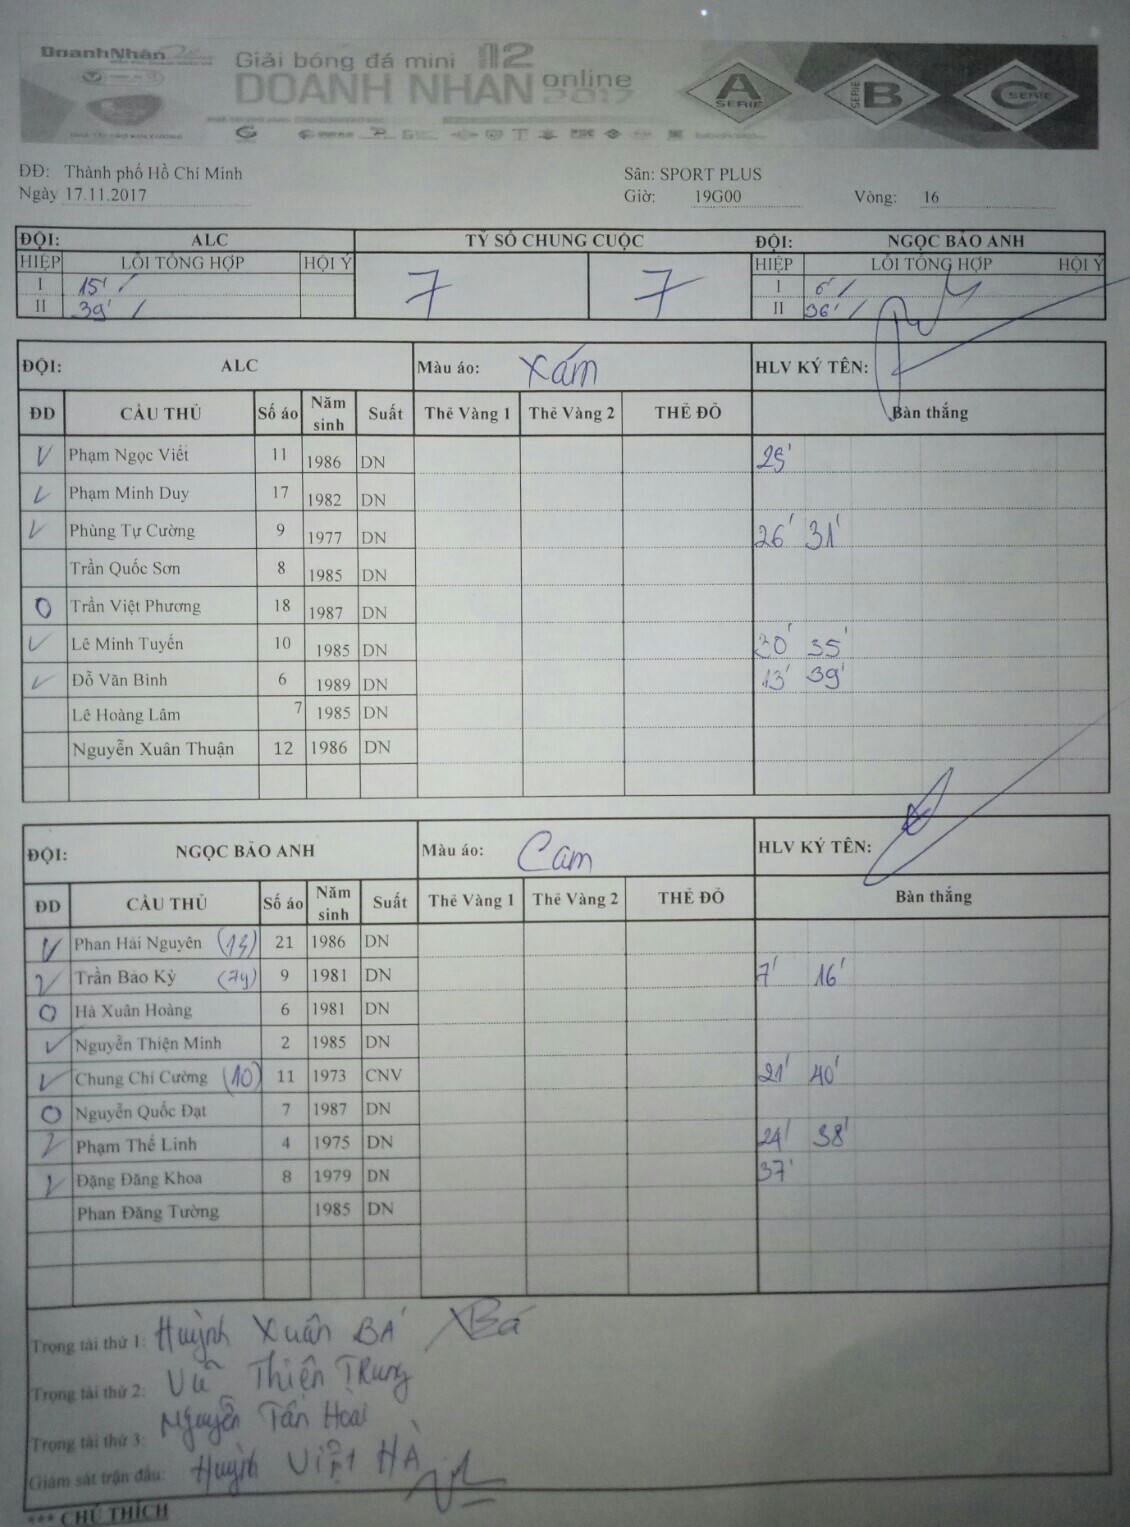 DoanhNhân
Giải bóng đá mini 112
DOANH NHÂN online 2017
A SERIE
SERIE B
C SERIE
ĐĐ: Thành phố Hồ Chí Minh Sân: SPORT PLUS
Ngày 17.11.2017 Giờ: 19G00 Vòng: 16
ĐỘI: ALC TỶ SỐ CHUNG CUỘC ĐỘI: NGỌC BẢO ANH
HIỆP LỖI TỔNG HỢP HỘI Ý HIỆP LỖI TỔNG HỢP HỘI Ý
I 15' / 7 7 I 6' /
II 39' / II 36' /
ĐỘI: ALC Màu áo: Xám HLV KÝ TÊN:
ĐD CẦU THỦ Số áo Năm sinh Suất Thẻ Vàng 1 Thẻ Vàng 2 THẺ ĐỎ Bàn thắng
V Phạm Ngọc Viết 11 1986 DN 25'
V Phạm Minh Duy 17 1982 DN
V Phùng Tự Cường 9 1977 DN 26' 31'
Trần Quốc Sơn 8 1985 DN
O Trần Việt Phương 18 1987 DN
V Lê Minh Tuyến 10 1985 DN 30' 35'
V Đỗ Văn Bình 6 1989 DN 13' 39'
Lê Hoàng Lâm 7 1985 DN
Nguyễn Xuân Thuận 12 1986 DN
ĐỘI: NGỌC BẢO ANH Màu áo: Cam HLV KÝ TÊN:
ĐD CẦU THỦ Số áo Năm sinh Suất Thẻ Vàng 1 Thẻ Vàng 2 THẺ ĐỎ Bàn thắng
V Phan Hải Nguyên 21 1986 DN
V Trần Bảo Kỳ (79) 9 1981 DN 7' 16'
O Hà Xuân Hoàng 6 1981 DN
V Nguyễn Thiện Minh 2 1985 DN
V Chung Chí Cường (10) 11 1973 CNV 21' 40'
O Nguyễn Quốc Đạt 7 1987 DN
V Phạm Thế Linh 4 1975 DN 24' 38'
V Đặng Đăng Khoa 8 1979 DN 37'
Phan Đăng Tường 1985 DN
Trọng tài thứ 1: Huỳnh Xuân BÁ XBá
Trọng tài thứ 2: Vũ Thiện TRung
Trọng tài thứ 3: Nguyễn Tấn Hoài
Giám sát trận đấu: Huỳnh Việt HÀ
*** CHÚ THÍCH